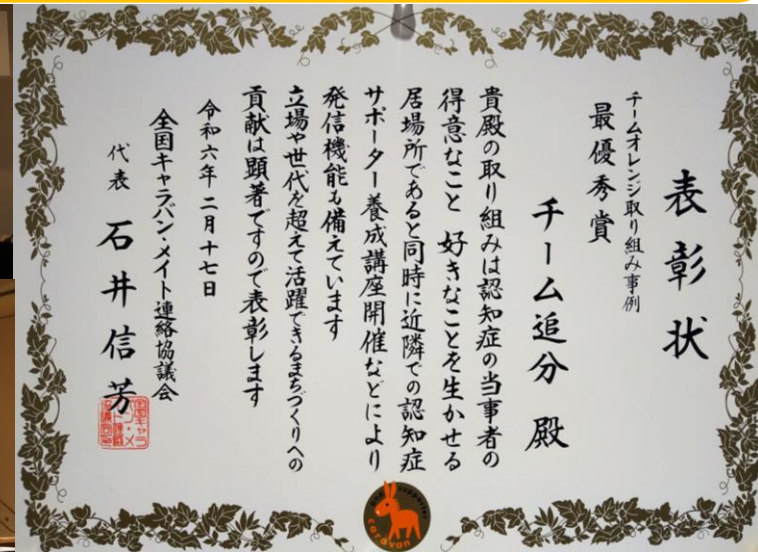 表彰状
チームオレンジ取り組み事例
最優秀賞
チーム追分 殿
貴殿の取り組みは認知症の当事者の
得意なこと 好きなことを生かせる
居場所であると同時に近隣での認知症
サポーター養成講座開催などにより
発信機能も備えています
立場や世代を超えて活躍できるまちづくりへの
貢献は顕著ですので表彰します
令和六年二月十七日
全国キャラバン・メイト連絡協議会
代表 石井信芳
supporter
caravan